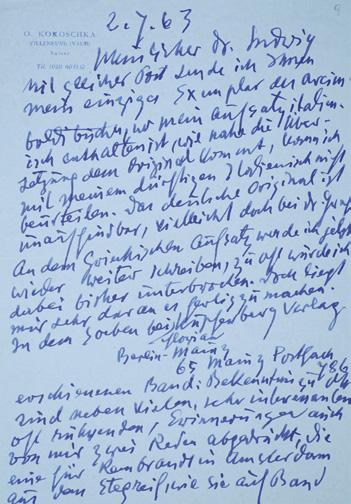 O. KOKOSCHKA
VILLENEUVE (VAUD)
2. 7. 63
Mein lieber Dr. Ludwig
Mit gleicher Post sende ich Ihnen
mein einziges Exemplar des
wo mein Aufsatz italien-
isch enthalten ist, wie nahe die Über-
setzung dem Original kommt, kann ich
mit meinem dürftigen Italienisch nicht
beurteilen. Das deutsche Original ist
unauffindbar, vielleicht doch bei Dr.
An dem Aufsatz werde ich jetzt
wieder weiter schreiben, zu oft wurde ich
dabei bisher unterbrochen. Doch liegt
mir sehr daran es fertig zu machen.
In dem soeben bei Florian Kupferberg Verlag
Berlin-Mainz
65 Mainz Postfach
erschienenen Band: Bekenntnis zu
sind neben vielen, sehr interessanten
oft rührenden, Erinnerungen auch
von mir zwei Reden abgedruckt, die
eine für Rembrandt in Amsterdam
aus dem Stegreif wie sie auf Band